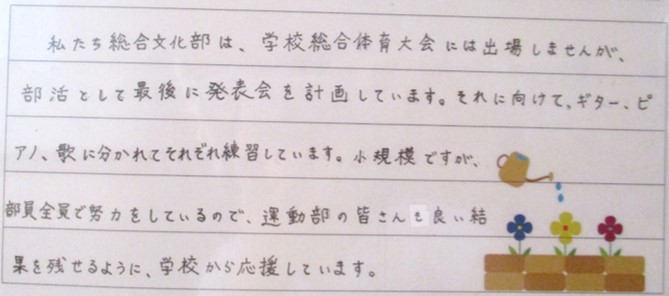 私たち総合文化部は、学校総合体育大会には出場しませんが、
部活として最後に発表会を計画しています。それに向けて、ギター、ピ
アノ、歌に分かれてそれぞれ練習しています。小規模ですが、
部員全員で努力をしているので、運動部の皆さんも良い結
果を残せるように、学校から応援しています。